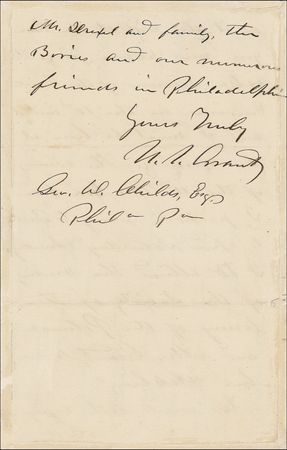 Mr. Drexel and family, the
Bories and our numerous
friends in Philadelphia
Yours Truly
U. S. Grant
Geo. W. Childs, Esq.
Phila Pa